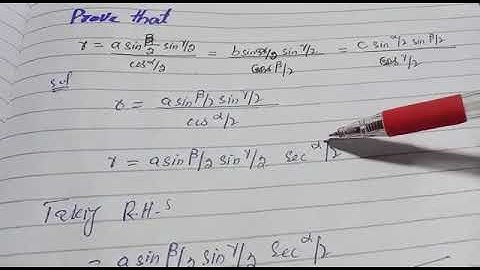 Prove that
r = a sin β/2 sin γ/2 / cos α/2 = b sin α/2 sin γ/2 / cos β/2 = c sin α/2 sin β/2 / cos γ/2
Sol
r = a sin β/2 sin γ/2 / cos α/2
r = a sin β/2 sin γ/2 sec α/2
Takiy R.H.S
= a sin β/2 sin γ/2 sec α/2